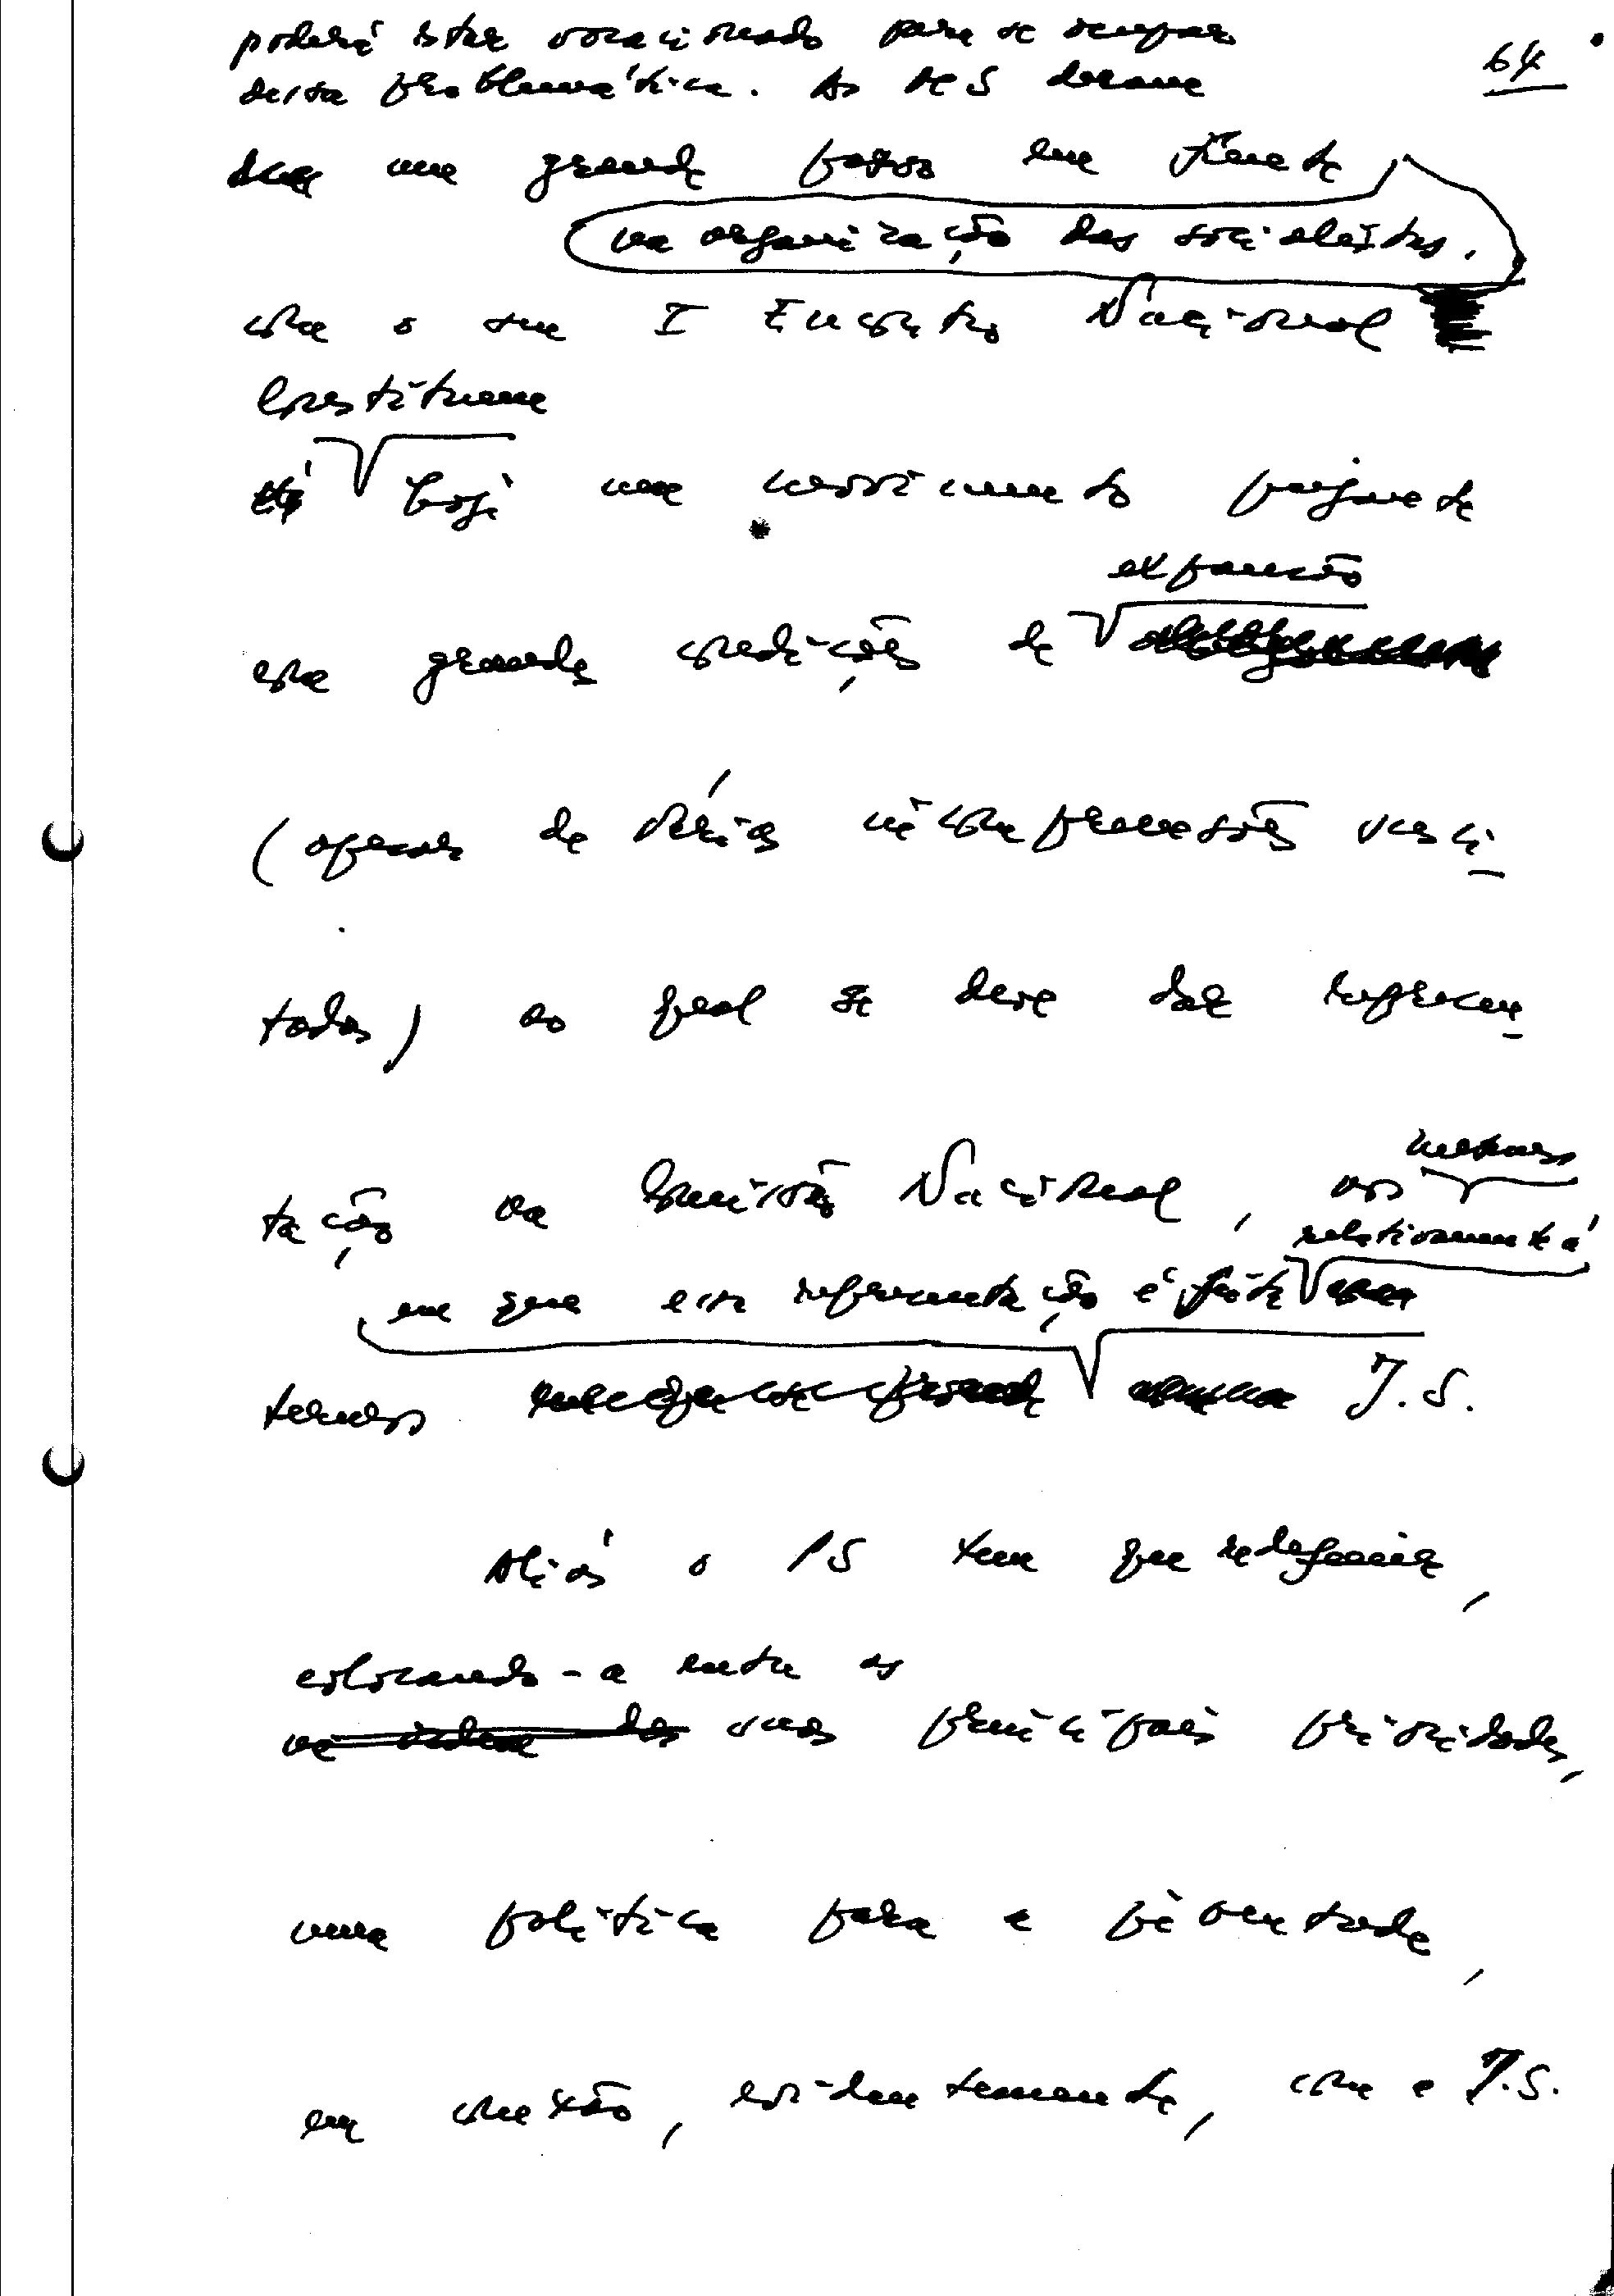 64
poderá estar vocacionado para se ocupar
desta problemática. As deram
um grande passo em frente
na organização dos socialistas,
com o seu I Encontro Nacional
Constituem
hoje um movimento
expansão
com grandes condições de
(apesar de várias incompreensões susci
tadas) ao qual se deve dar represen
tação na Comissão Nacional, nos mesmos
relativamente à
em que essa representação é feita
termos J.S.
Aliás o PS tem que redefinir,
colocando-a entre as
na ordem das suas principais prioridades,
uma política para a juventude,
em conexão, evidentemente, com a J.S.